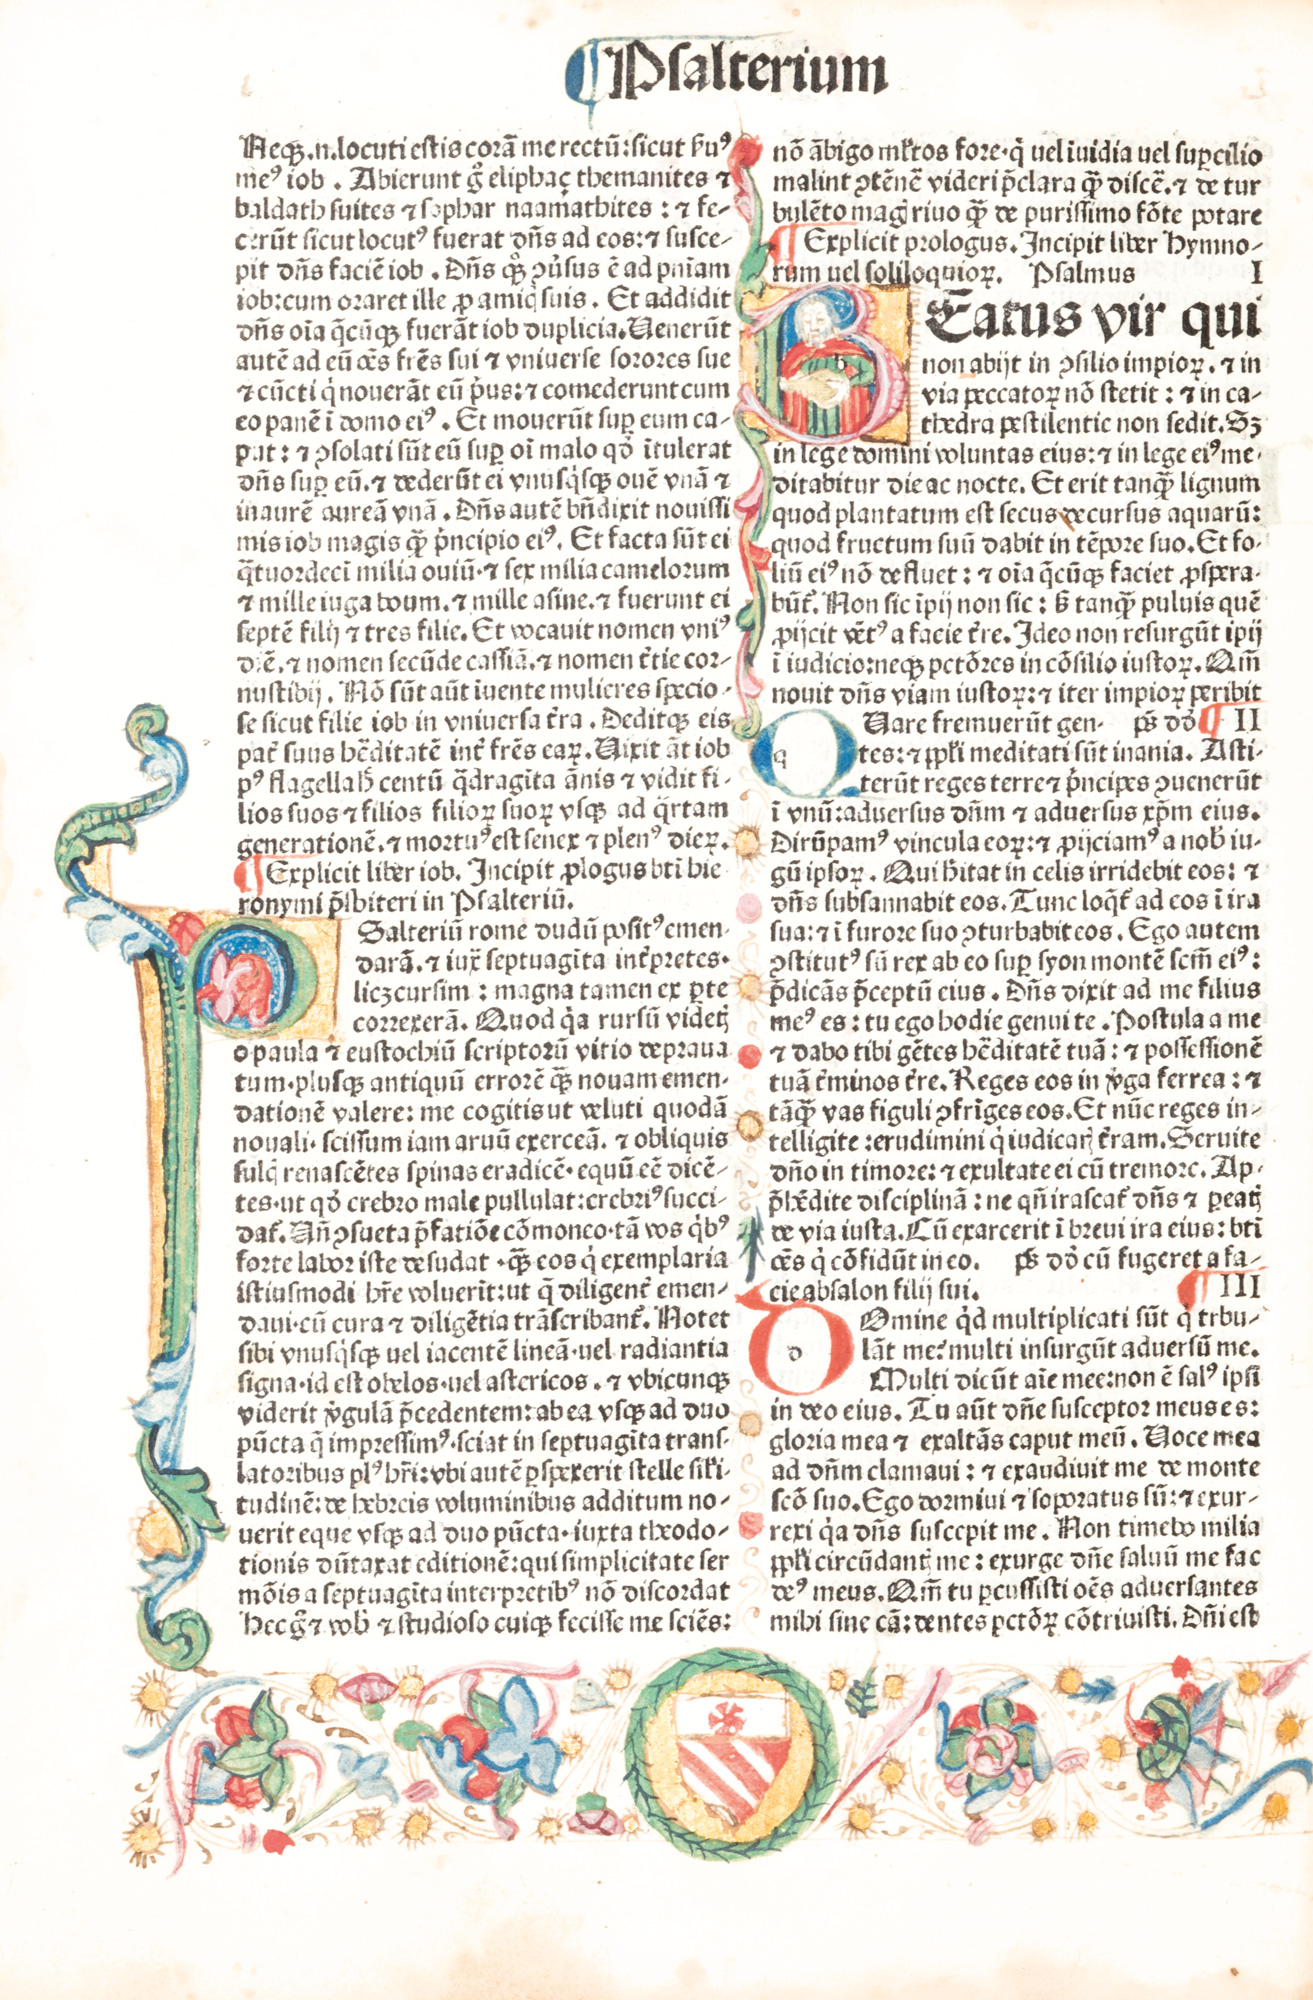 Psalterium
Neqꝫ.n.locuti estis corā me rectū: sicut ẜuꝰ
meꝰ iob . Abierunt g̊ eliphaç themanites ⁊
baldath suites ⁊ sophar naamathites : ⁊ fe-
cerūt sicut locutꝰ fuerat dn̄s ad eos: ⁊ susce-
pit dn̄s faciē iob . Dn̄s qꝫ ꝯuersus ē ad pnīam
iob: cum oraret ille ꝓ amicis suis . Et addidit
dn̄s oīa q̄cūqꝫ fuerāt iob duplicia. Uenerūt
autē ad eū oēs fr̄es sui ⁊ vniuerse sorores sue
⁊ cūcti q̇ nouerāt eū p̄us: ⁊ comederunt cum
eo panē ī domo eiꝰ . Et mouerūt suꝑ eum ca-
put: ⁊ ꝯsolati sūt eū suꝑ oī malo qd̄ ītulerat
dn̄s suꝑ eū. ⁊ dederūt ei vnusq̇sqꝫ ouē vnā ⁊
inaurē aureā vnā . Dn̄s autē bn̄dixit nouissi
mis iob magis qꝫ̄ p̄ncipio eiꝰ. Et facta sūt ei
q̄tuordecī milia ouiū. ⁊ sex milia camelorum
⁊ mille iuga boum. ⁊ mille asine. ⁊ fuerunt ei
septē filij ⁊ tres filie. Et vocauit nomen vniꝰ
diē. ⁊ nomen secūde cassiā. ⁊ nomen t̄tie cor-
nustibij. Nō sūt aūt īuente mulieres specio-
se sicut filie iob in vniuersa t̄ra . Deditqꝫ eis
pat̄ suus hēditatē int̄ fr̄es eaꝝ. Uixit āt iob
pꝰ flagella h̄ centū q̄dragīta ānis ⁊ vidit fi-
lios suos ⁊ filios filioꝝ suoꝝ vsqꝫ ad q̄rtam
generationē. ⁊ mortuꝰ est senex ⁊ plenꝰ dieꝝ.
¶ Explicit liber iob. Incipit ꝓlogus bti hie
ronymi p̄sbiteri in Psalteriū.
PSalteriū rome dudū positꝰ emen-
darā. ⁊ iux̄ septuagīta int̄pretes.
licꝫ cursim : magna tamen ex ꝑte
correxerā. Quod q̇a rursū videtis
o paula ⁊ eustochiū scriptorū vitio deprаua
tum. plusqꝫ antiquū errorē qꝫ̄ nouam emen-
dationē valere: me cogitis ut veluti quodā
nouali. scissum iam aruū exerceā. ⁊ obliquis
sulcis renascētes spinas eradicē. equū eē dicē-
tes. ut qd̄ crebro male pullulat: crebriꝰ succi-
dat̄. Un̄ ꝯsueta p̄fatiōe cōmoneo. tā vos q̇bꝰ
forte labor iste desudat . qꝫ̄ eos q̇ exemplaria
istiusmodi hr̄e voluerīt: ut q̄ diligent̄ emen-
daui. cū cura ⁊ diligētia trāscribant̄. Notet
sibi vnusq̇sqꝫ uel iacentē lineā. uel radiantia
signa. id est obelos. uel astericos . ⁊ vbicunqꝫ
viderit v̇gulā p̄cedentem: ab ea vsqꝫ ad duo
pūcta q̄ impressimꝰ. sciat in septuagīta trans-
latoribus plꝰ hr̄i: vbi autē ꝑspexerit stelle sil̄i-
tudinē: de hebreis voluminibus additum no-
uerit eque vsqꝫ ad duo pūcta. iuxta theodo-
tionis dūtaxat editionē: qui simplicitate ser
mōis a septuagīta interpretibꝰ nō discordat
Hec g̊ ⁊ vob̄ ⁊ studioso cuiqꝫ fecisse me sciēs:
nō ābigo ml̄tos fore. q̇ uel īuidia uel suꝑcilio
malint ꝯtēnē videri p̄clara qꝫ̄ discē. ⁊ de tur
bulēto magis riuo qꝫ̄ de purissimo fōte potare
¶ Explicit prologus. Incipit liber hymno-
rum uel soliloquioꝝ. Psalmus I
BEatus vir qui
non abijt in ꝯsilio impioꝝ. ⁊ in
via peccatoꝝ nō stetit : ⁊ in ca-
thedra pestilentie non sedit. Sꝫ
in lege domini voluntas eius: ⁊ in lege eiꝰ me-
ditabitur die ac nocte. Et erit tanqꝫ̄ lignum
quod plantatum est secus decursus aquarū:
quod fructum suū dabit in tēpore suo. Et fo-
liū eiꝰ nō defluet : ⁊ oīa q̄cūqꝫ faciet ꝓspera-
būt̄. Non sic īpij non sic : s̄ tanqꝫ̄ puluis quē
ꝓijcit vētꝰ a facie t̄re. Ideo non resurgūt īpij
ī iudicio: neqꝫ pctōres in cōsilio iustoꝝ. Qm̄
nouit dn̄s viam iustoꝝ: ⁊ iter impioꝝ peribit
QUare fremuerūt gen- ps̄ dō ¶ II
tes: ⁊ ppl̄i meditati sūt inania. Asti-
terūt reges terre ⁊ p̄ncipes ꝯuenerūt
ī vnū: aduersus dn̄m ⁊ aduersus xp̄m eius.
Dirūpamꝰ vincula eoꝝ: ⁊ ꝓijciamꝰ a nob̄ iu-
gū ipsoꝝ . Qui h̄itat in celis irridebit eos: ⁊
dn̄s subsannabit eos. Tunc loq̄t̄ ad eos ī ira
sua: ⁊ ī furore suo ꝯturbabit eos . Ego autem
ꝯstitutꝰ sū rex ab eo suꝑ syon montē scm̄ eiꝰ :
p̄dicās p̄ceptū eius . Dn̄s dixit ad me filius
meꝰ es : tu ego hodie genui te . Postula a me
⁊ dabo tibi gētes hēditatē tuā : ⁊ possessionē
tuā t̄minos t̄re. Reges eos in v̇ga ferrea : ⁊
tāqꝫ̄ vas figuli ꝯfrīges eos. Et nūc reges in-
telligite : erudimini q̇ iudicatis t̄ram. Seruite
dn̄o in timore: ⁊ exultate ei cū tremore. Ap-
p̄hēdite disciplinā : ne qn̄ irascat̄ dn̄s ⁊ ꝑeatis
de via iusta. Cū exarcerit ī breui ira eius: bti
oēs q̇ cōfidūt in eo. ps̄ dō cū fugeret a fa-
cie absalon filij sui. ¶ III
DOmine q̇d multiplicati sūt q̇ trbu-
lāt me? multi insurgūt aduersū me.
Multi dicūt aīe mee: non ē salꝰ ipsi
in deo eius. Tu aūt dn̄e susceptor meus es:
gloria mea ⁊ exaltās caput meū . Uoce mea
ad dn̄m clamaui : ⁊ exaudiuit me de monte
scō suo. Ego dormiui ⁊ soporatus sū: ⁊ exur-
rexi q̇a dn̄s suscepit me . Non timebo milia
ppl̄i circūdantis me : exurge dn̄e saluū me fac
deꝰ meus. Qm̄ tu ꝑcussisti oēs aduersantes
mihi sine cā: dentes pctōꝝ cōtriuisti. Dn̄i est